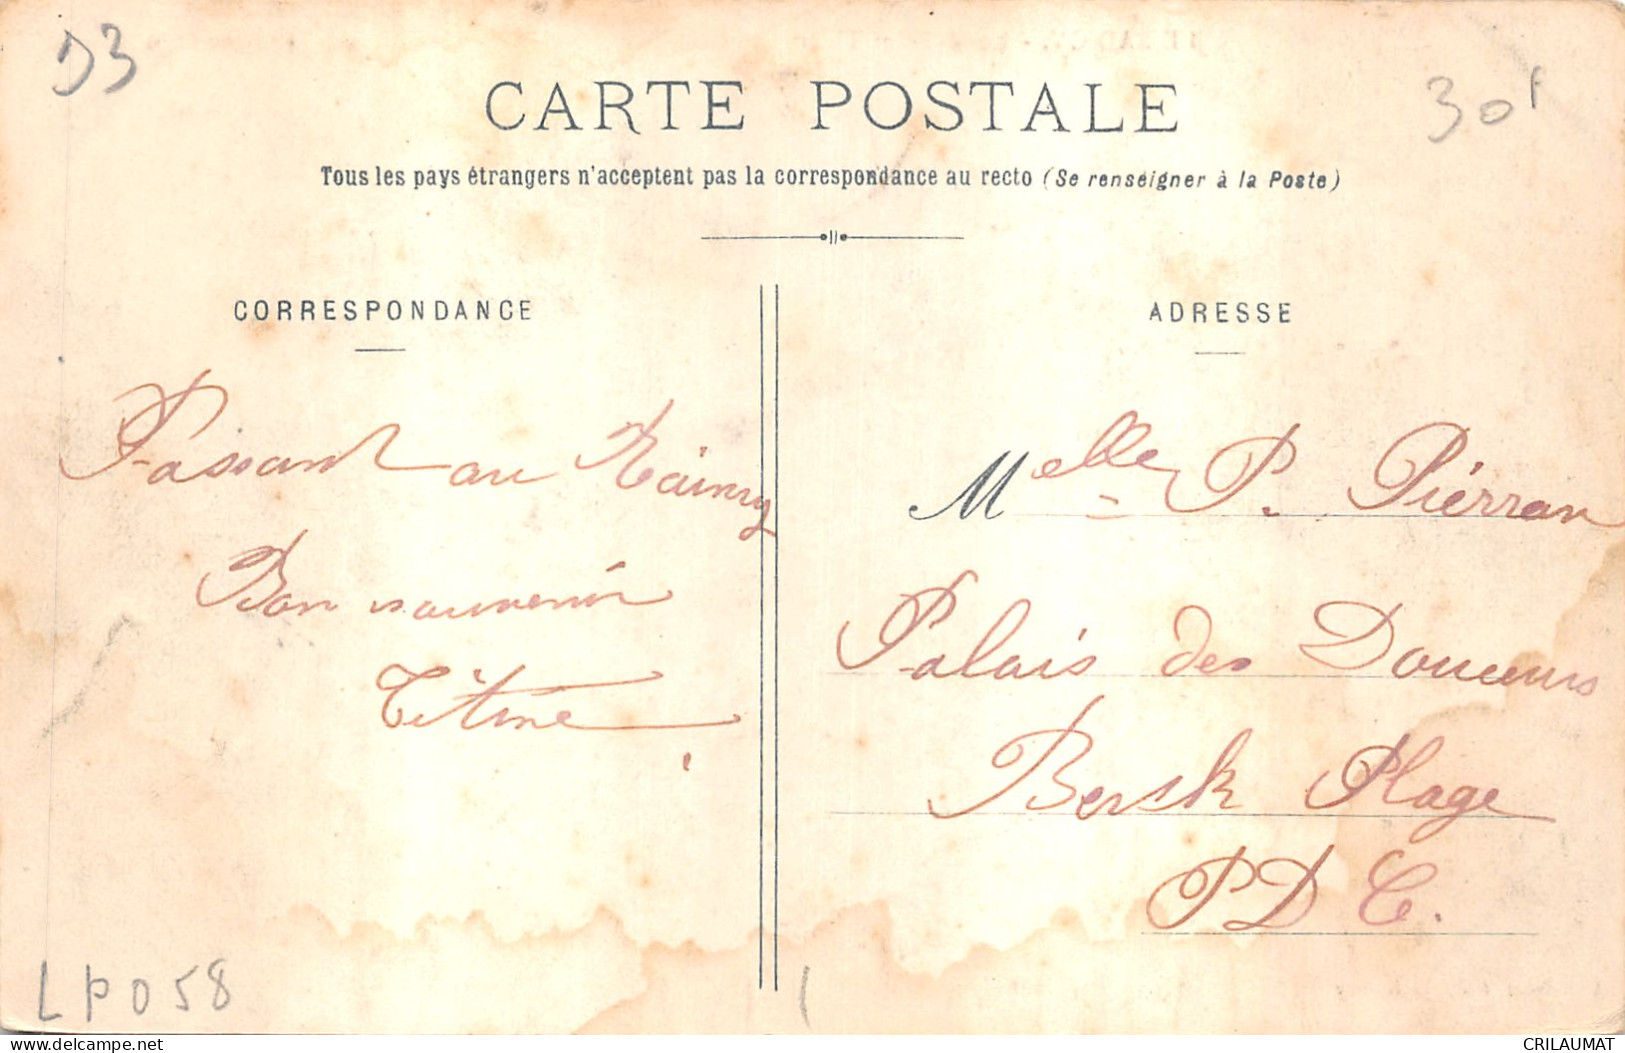 D3
30f
CARTE POSTALE
Tous les pays étrangers n'acceptent pas la correspondance au recto (Se renseigner à la Poste)
CORRESPONDANCE
Passant au Raincy
Bon souvenir
Titine
ADRESSE
Melle P. Pierron
Palais des Douceurs
Bersk Plage
P D C.
LP058
CRILAUMAT